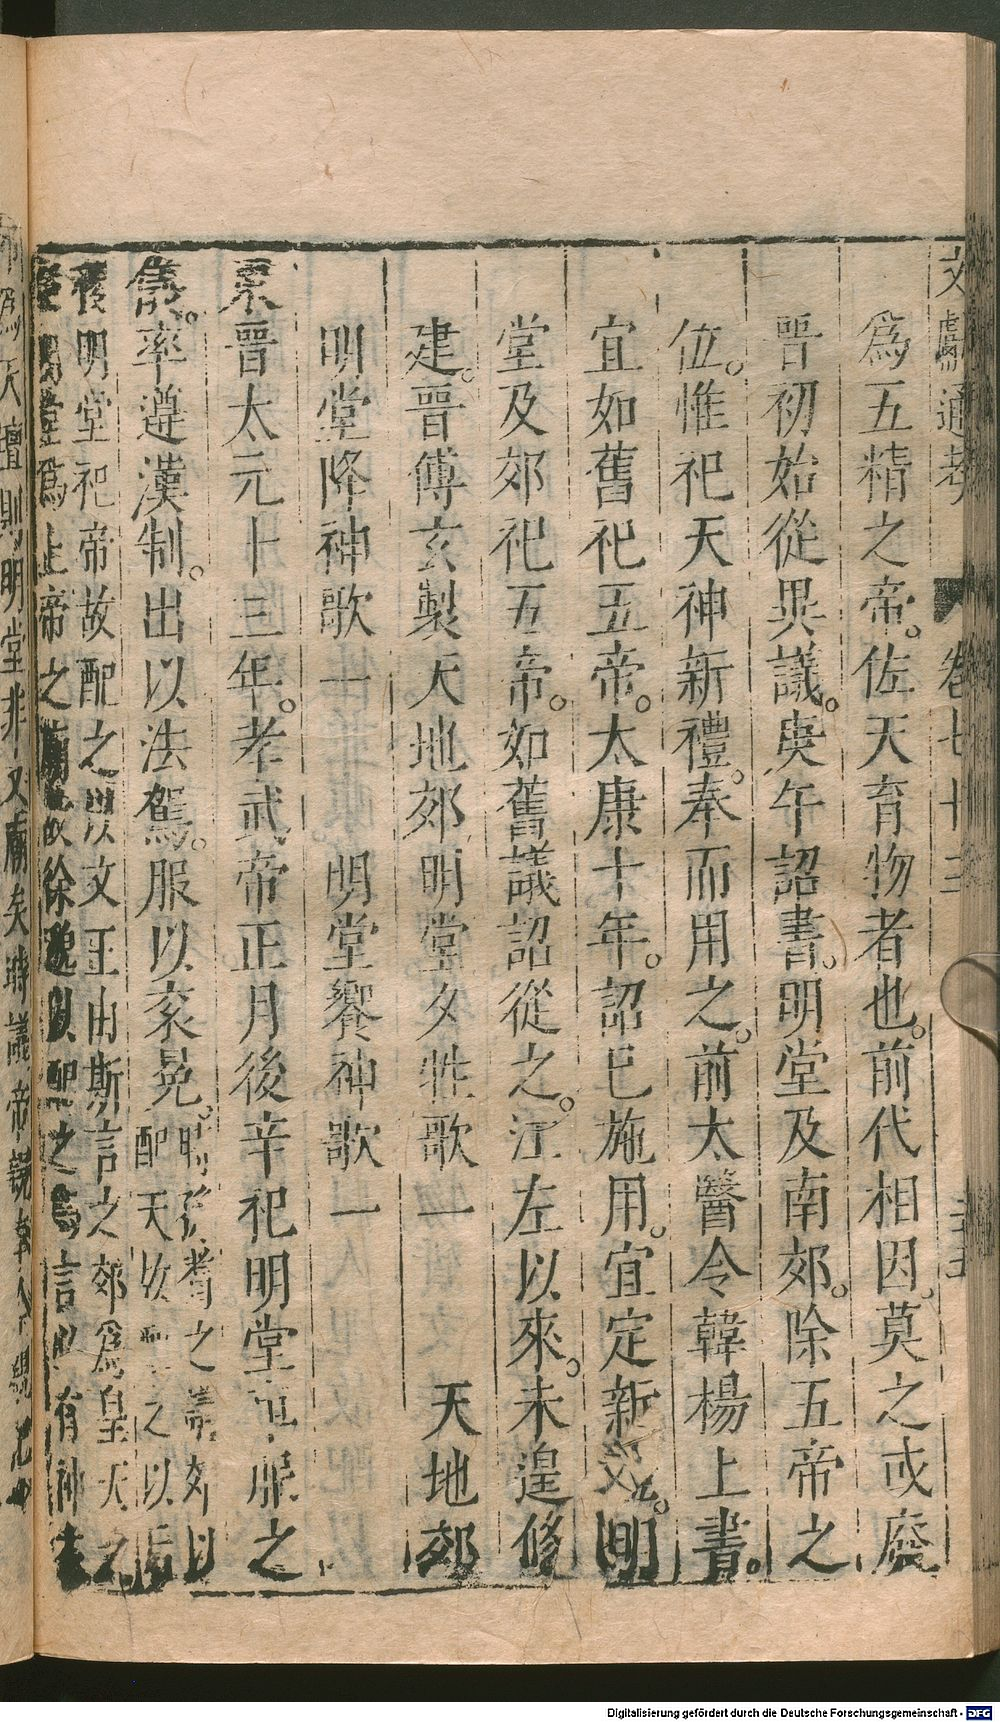 文獻通考 卷七十三
為五精之帝。佐天育物者也。前代相因。莫之或廢
晉初始從異議。庚午詔書。明堂及南郊。除五帝之
位。惟祀天神新禮。奉而用之。前太醫令韓楊上書。
宜如舊祀五帝。太康十年。詔已施用。宜定新 明
堂及郊祀五帝。如舊議詔從之。江左以來。未遑修
建。晉傅玄製天地郊明堂夕牲歌一 天地郊
明堂降神歌一 明堂饗神歌一
晉太元十三年。孝武帝正月後辛祀明堂 服之
儀。率遵漢制。出以法駕。服以袞冕。
之議郊以
配天故配之以后
稷明堂祀帝故配之以文王由斯言之郊為皇天之
堂為上帝之 故徐邈以配之為言 有神
為天壇則明堂非文廟矣時議帝
Digitalisierung gefördert durch die Deutsche Forschungsgemeinschaft - DFG